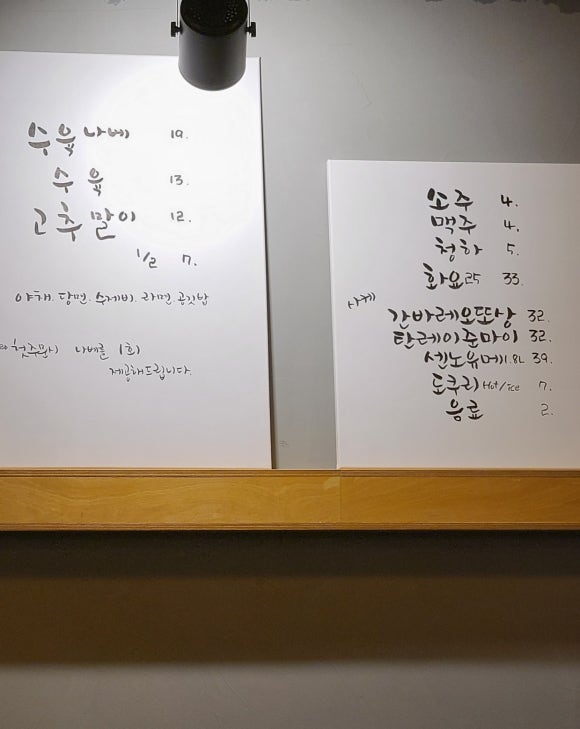 수육나베 19.
수육 13.
고추말이 12.
1/2 7.
야채. 당면. 수제비. 라면. 공깃밥
첫주문시 나베를 1회
제공해드립니다.
소주 4.
맥주 4.
청하 5.
화요25 33.
사케
간바레오또상 32.
탄레이준마이 32.
센노유메1.8L 39.
도쿠리 Hot/ice 7.
음료 2.